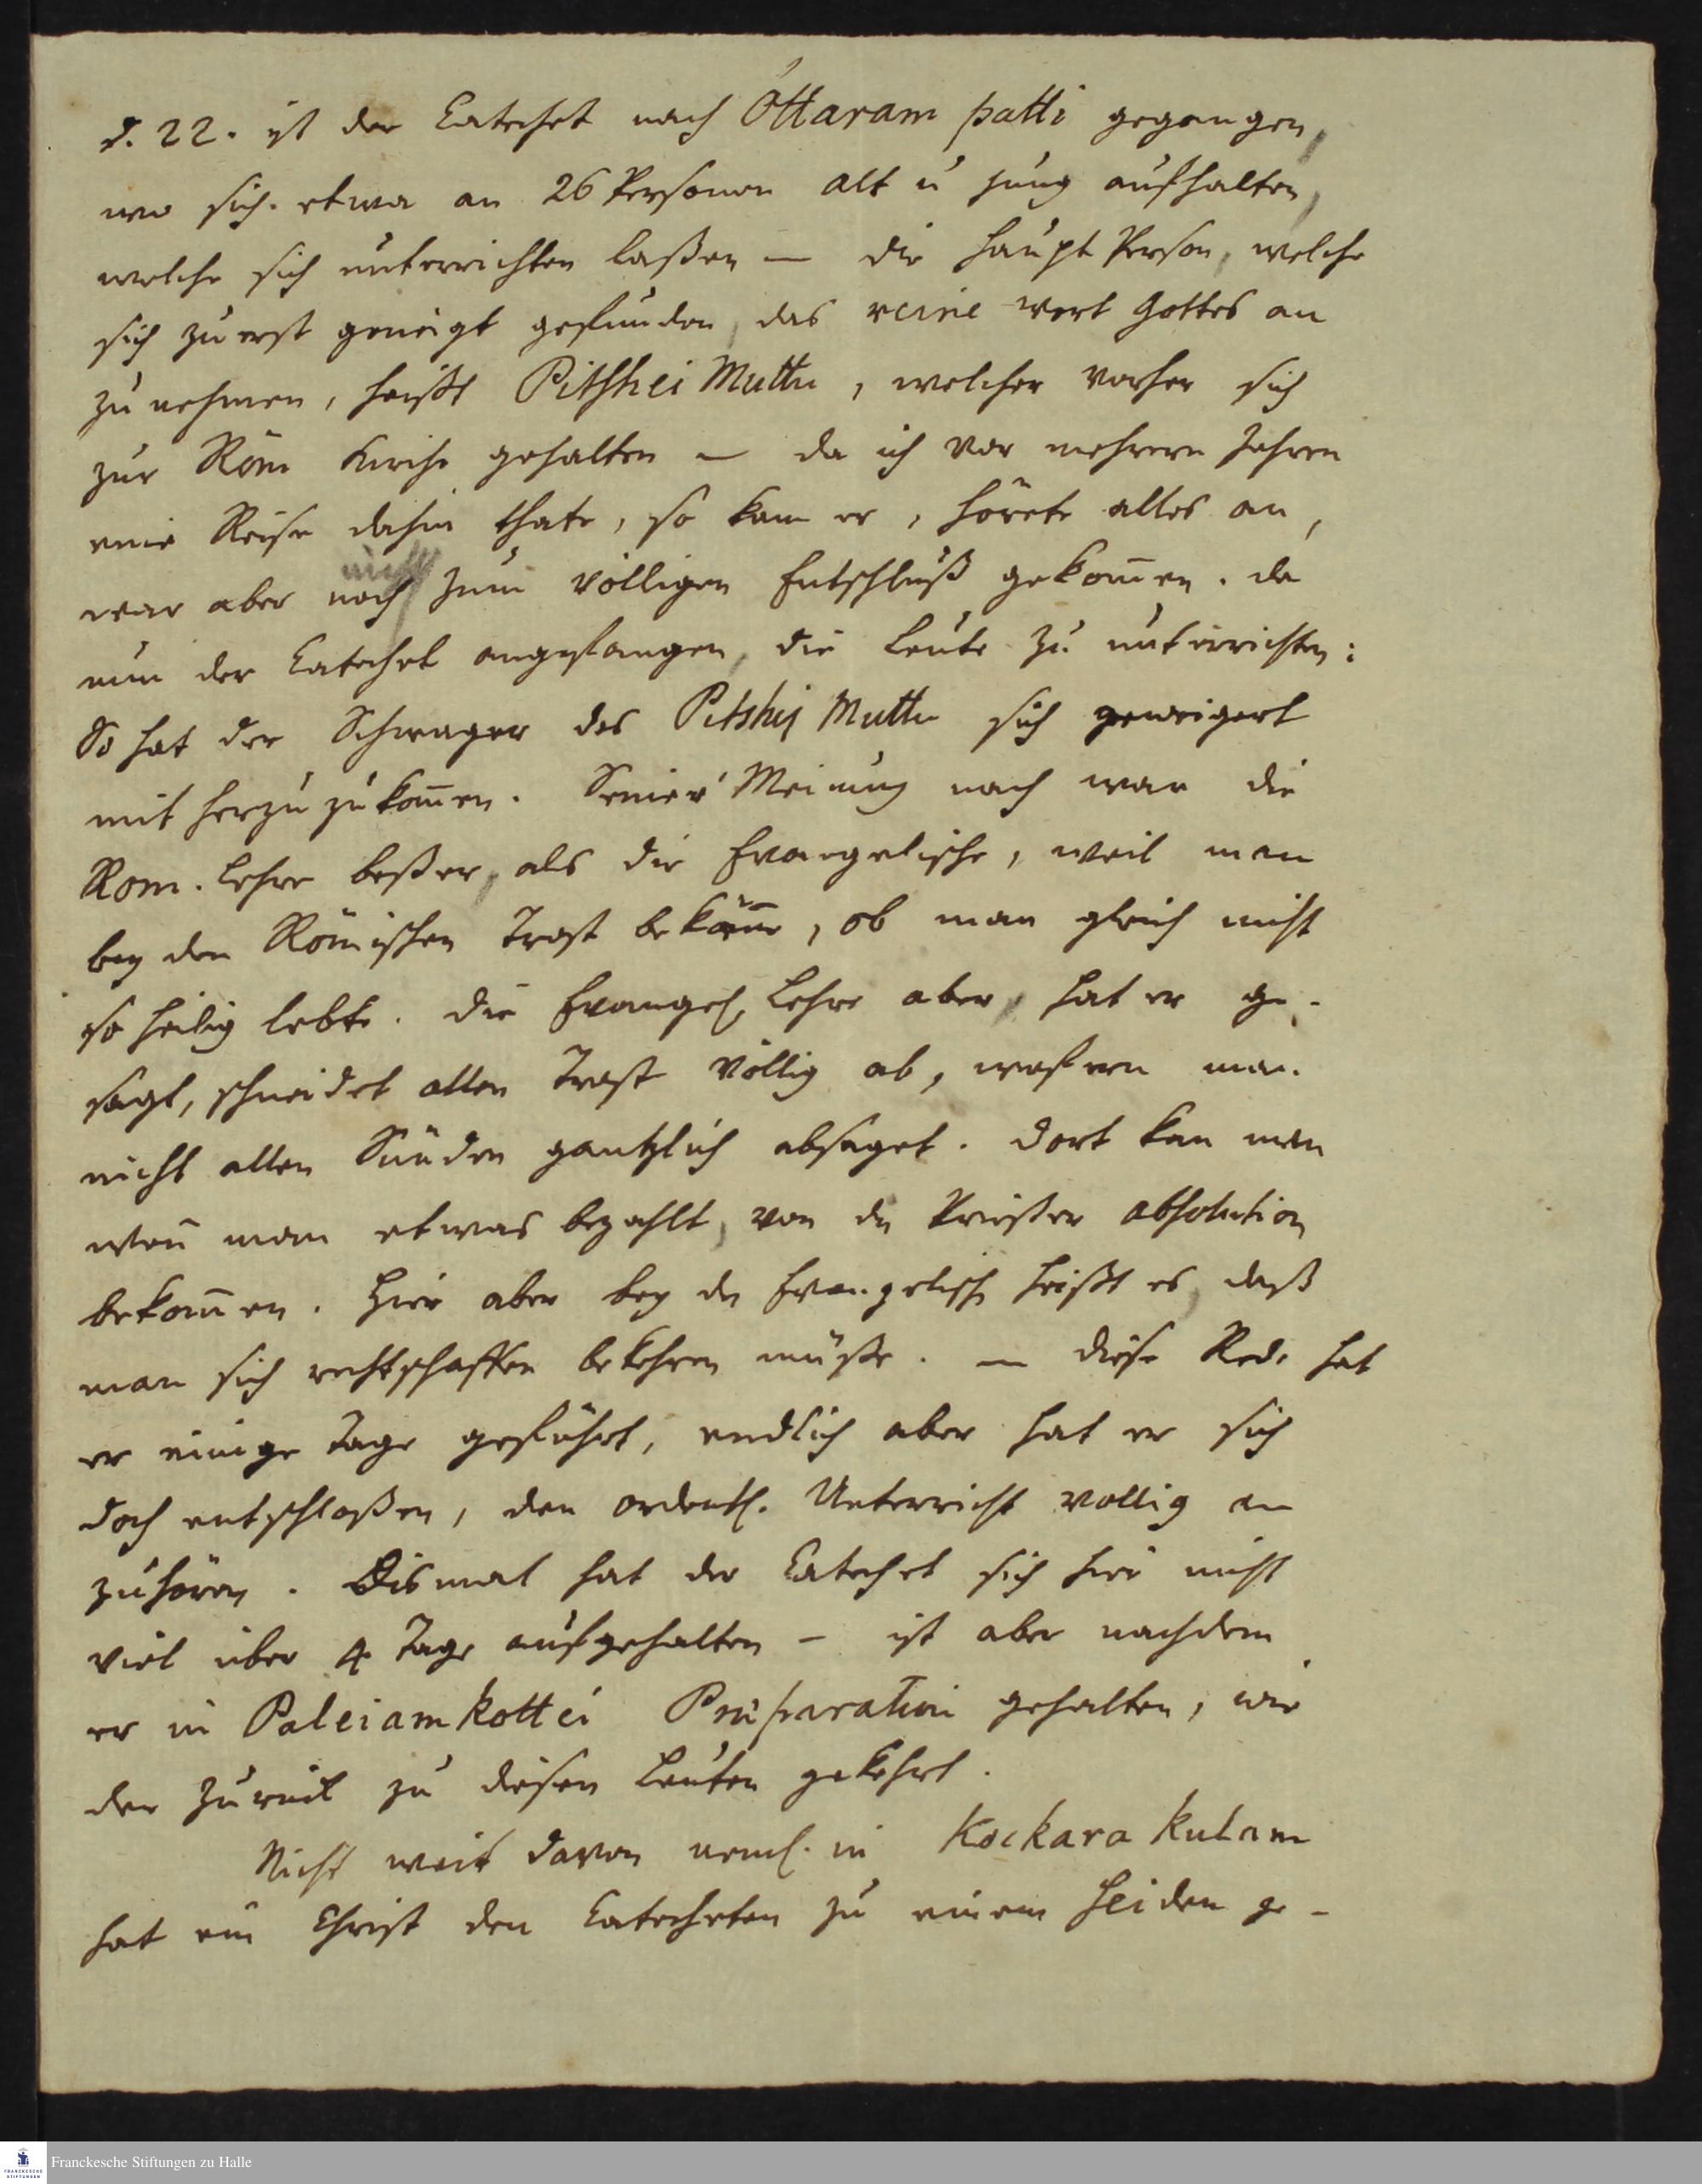 d. 22. ist der Catechet nach Ottaram patti gegangen,
wo sich etwa an 26 Personen alt u jung aufhalten,
welche sich unterrichten laßen – die Haupt Person, welche
sich zu erst geneigt gefunden, das reine wort Gottes an
zu nehmen, heißt Pitshei Muttu, welcher vorher sich
zur Röm Kirche gehalten – da ich vor mehrern Jahren
eine Reise dahin thate, so kam er, hörete alles an,
war aber noch nicht zum völligen Entschluß gekom̄en. da
nun der Catechet angefangen, die Leute zu unterrichten:
So hat der Schwager des Pitshej Muttu sich geweigert
mit herzu zu kom̄en. Seiner Meinung nach war die
Rom. Lehre beßer, als die Evangelische, weil man
bey den Römischen Trost bekäme, ob man gleich nicht
so heilig lebte. die Evangel. Lehre aber, hat er ge-
sagt, schneidet allen Trost völlig ab, wofern man
nicht allen Sünden gantzlich absaget. dort kan man
wen̄ man etwas bezahlt, von dn Priester absolution
bekom̄en. Hier aber bey dn Evangelisch heißt es, daß
man sich rechtschaffen bekehren müße. – diese Rede hat
er einige Tage geführt, endlich aber hat er sich
doch entschloßen, den ordentl. Unterricht vollig an
zuhören. Dismal hat der Catechet sich hier nicht
viel über 4 Tage aufgehalten – ist aber nachdem
er in Paleiamkottei Präparation gehalten, wie
der zurük zu diesen Leuten gekehrt.
Nicht weit davon neml. in Kockara kulam
hat ein Christ den Catecheten zu einem Heiden ge-
Franckesche Stiftungen zu Halle
FRANCKESCHE
STIFTUNGEN